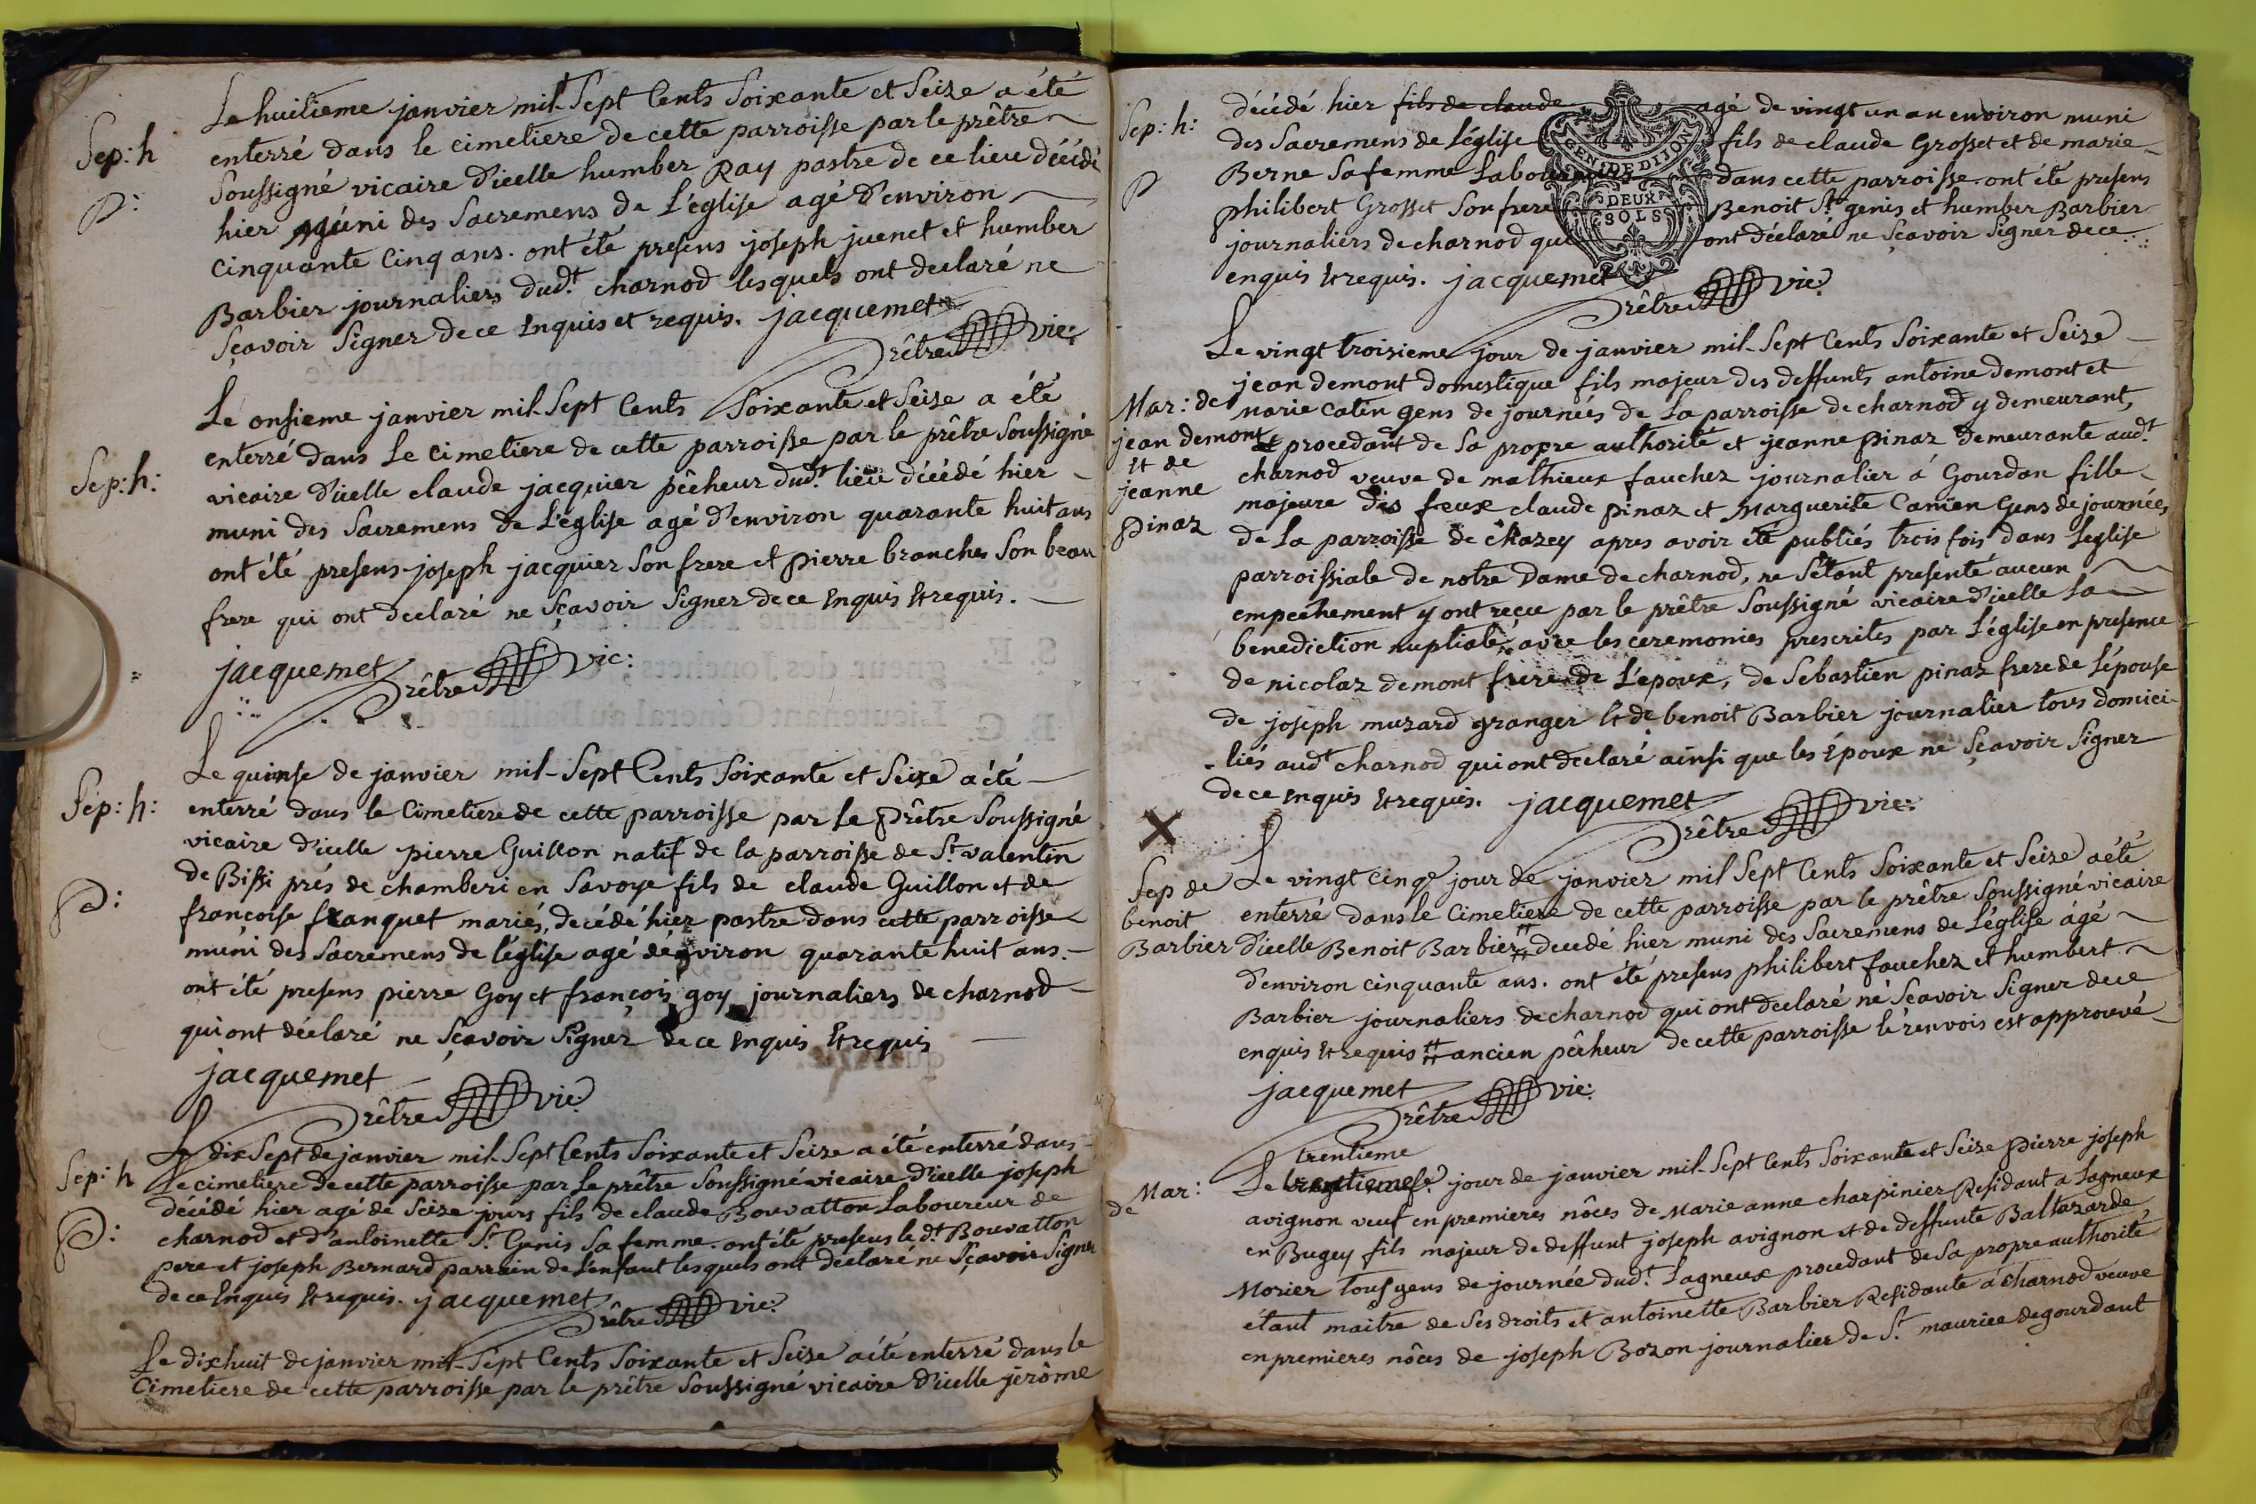 Sep: h
P:
Le huitieme janvier mil Sept Cents Soixante et Seize a été
enterré dans le cimetiere de cette parroisse par le prêtre
Soussigné vicaire d'icelle humber Ray pastre de ce lieu décédé
hier muni des Sacremens de L'église agé d'environ
cinquante cinq ans. ont été presens joseph juenet et humber
Barbier journaliers dudt. charnod lesquels ont declaré ne
Sçavoir Signer de ce Enquis et requis. jacquemet
Prêtre vic:
Sep: h:
Le onsieme janvier mil Sept Cents Soixante et Seize a été
enterré dans Le Cimetiere de cette parroisse par le prêtre Soussigné
vicaire d'icelle claude jacquier pêcheur dudt. lieu décédé hier
muni des Sacremens de L'église agé d'environ quarante huit ans
ont été presens joseph jacquier Son frere et pierre branches Son beau
frere qui ont declaré ne Sçavoir Signer de ce Enquis Et requis.
jacquemet Prêtre vic:
Sep: h:
P:
Le quinse de janvier mil Sept Cents Soixante et Seize a été
enterré dans le Cimetiere de cette parroisse par Le Prêtre Soussigné
vicaire d'icelle pierre Guillon natif de la parroisse de St. valentin
de Bissi prés de chamberi en Savoye fils de claude Guillon et de
françoise franquet mariés, décédé hier pastre dans cette parroisse
muni des Sacremens de l'église agé d'environ quarante huit ans.
ont été presens pierre Goy et françois goy journaliers de charnod
qui ont déclaré ne Sçavoir Signer de ce Enquis Et requis
jacquemet
Prêtre vic:
Sep: h
P:
Le dix Sept de janvier mil Sept Cents Soixante et Seize a été enterré dans
Le cimetiere de cette parroisse par Le prêtre Soussigné vicaire d'icelle joseph
décédé hier agé de Seize jours fils de claude Bouvatton Laboureur de
charnod et d'antoinette St. Genis Sa femme. ont été presens le dt. Bouvatton
pere et joseph Bernard parrain de L'enfant lesquels ont déclaré ne Sçavoir Signer
de ce Enquis Et requis. jacquemet
Prêtre vic:
Le dixhuit de janvier mil Sept Cents Soixante et Seize a été enterré dans le
Cimetiere de cette parroisse par le prêtre Soussigné vicaire d'icelle jerôme
Sep: h:
P
décédé hier fils de claude agé de vingt un an environ muni
des Sacremens de L'église fils de claude Grosset et de marie
Berne Sa femme Laboureurs dans cette parroisse. ont été presens
philibert Grosset Son frere Benoit St. genis et humber Barbier
journaliers de charnod qui ont déclaré ne Sçavoir Signer de ce
enquis Et requis. jacquemet
Prêtre vic:
GEN. DE DIJON
DEUX
SOLS
Mar: de
jean demont
Et de
jeanne
pinaz
Le vingt troisieme jour de janvier mil Sept Cents Soixante et Seize
jean demont domestique fils majeur des deffunts antoine demont et
marie Catin gens de journées de La parroisse de charnod y demeurant,
procedant de Sa propre authorité et jeanne pinaz demeurante audt.
charnod veuve de mathieux fauchez journalier à Gourdan fille
majeure des feux claude pinaz et Marguerite Camien Gens de journées
de La parroisse de chazey apres avoir été publiés trois fois dans Léglise
parroissiale de notre Dame de charnod, ne Sétant presenté aucun
empechement y ont reçue par le prêtre Soussigné vicaire d'icelle La
benediction nuptiale, avec les ceremonies prescrites par L'église en presence
de nicolaz demont frere de L'époux, de Sebastien pinaz frere de L'épouse
de joseph muzard granger Et de benoit Barbier journalier tous domici-
-liés audt charnod qui ont declaré ainsi que les Époux ne Sçavoir Signer
de ce Enquis Et requis. jacquemet
Prêtre vic:
X
Sep de
benoit
Barbier
Le vingt cinqe jour de janvier mil Sept Cents Soixante et Seize a été
enterré dans le Cimetiere de cette parroisse par le prêtre Soussigné vicaire
d'icelle Benoit Barbier # decedé hier muni des Sacremens de L'église ágé
d'environ cinquante ans. ont été presens philibert fauchez et humbert
Barbier journaliers de charnod qui ont declaré né Sçavoir Signer de ce
enquis Et requis # ancien pêcheur de cette parroisse le renvois est approuvé
jacquemet
Prêtre vic:
Mar:
de
trentieme
Le jour de janvier mil Sept Cents Soixante et Seize pierre joseph
avignon veuf en premieres nôces de Marie anne charpinier Residant a Lagneux
en Bugey fils majeur de deffunt joseph avignon et de deffunte Baltazarde
Morier tous gens de journée dudt. Lagneux procedant de Sa propre authorité
étant maître de Ses droits et antoinette Barbier Residante à charnod veuve
en premieres nôces de joseph Bozon journalier de St. maurice de gourdant